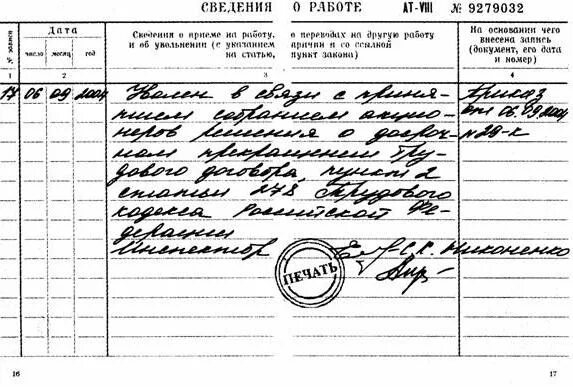 СВЕДЕНИЯ О РАБОТЕ АТ-VIII № 9279032
№ записи
Дата
число месяц год
Сведения о приеме на работу, о переводах на другую работу
и об увольнении (с указанием причин и со ссылкой
на статью, пункт закона)
На основании чего
внесена запись
(документ, его дата
и номер)
1 2 3 4
17 06 09 2004 Уволен в связи с приня- Приказ
тием собранием акцио- от 06.09.2004
неров решения о досроч- № 29-к
ном прекращении Тру-
дового договора, пункт 2
статьи 278 Трудового
кодекса Российской Фе-
дерации
Инспектор С.К. Никоненко
ПЕЧАТЬ
16 17